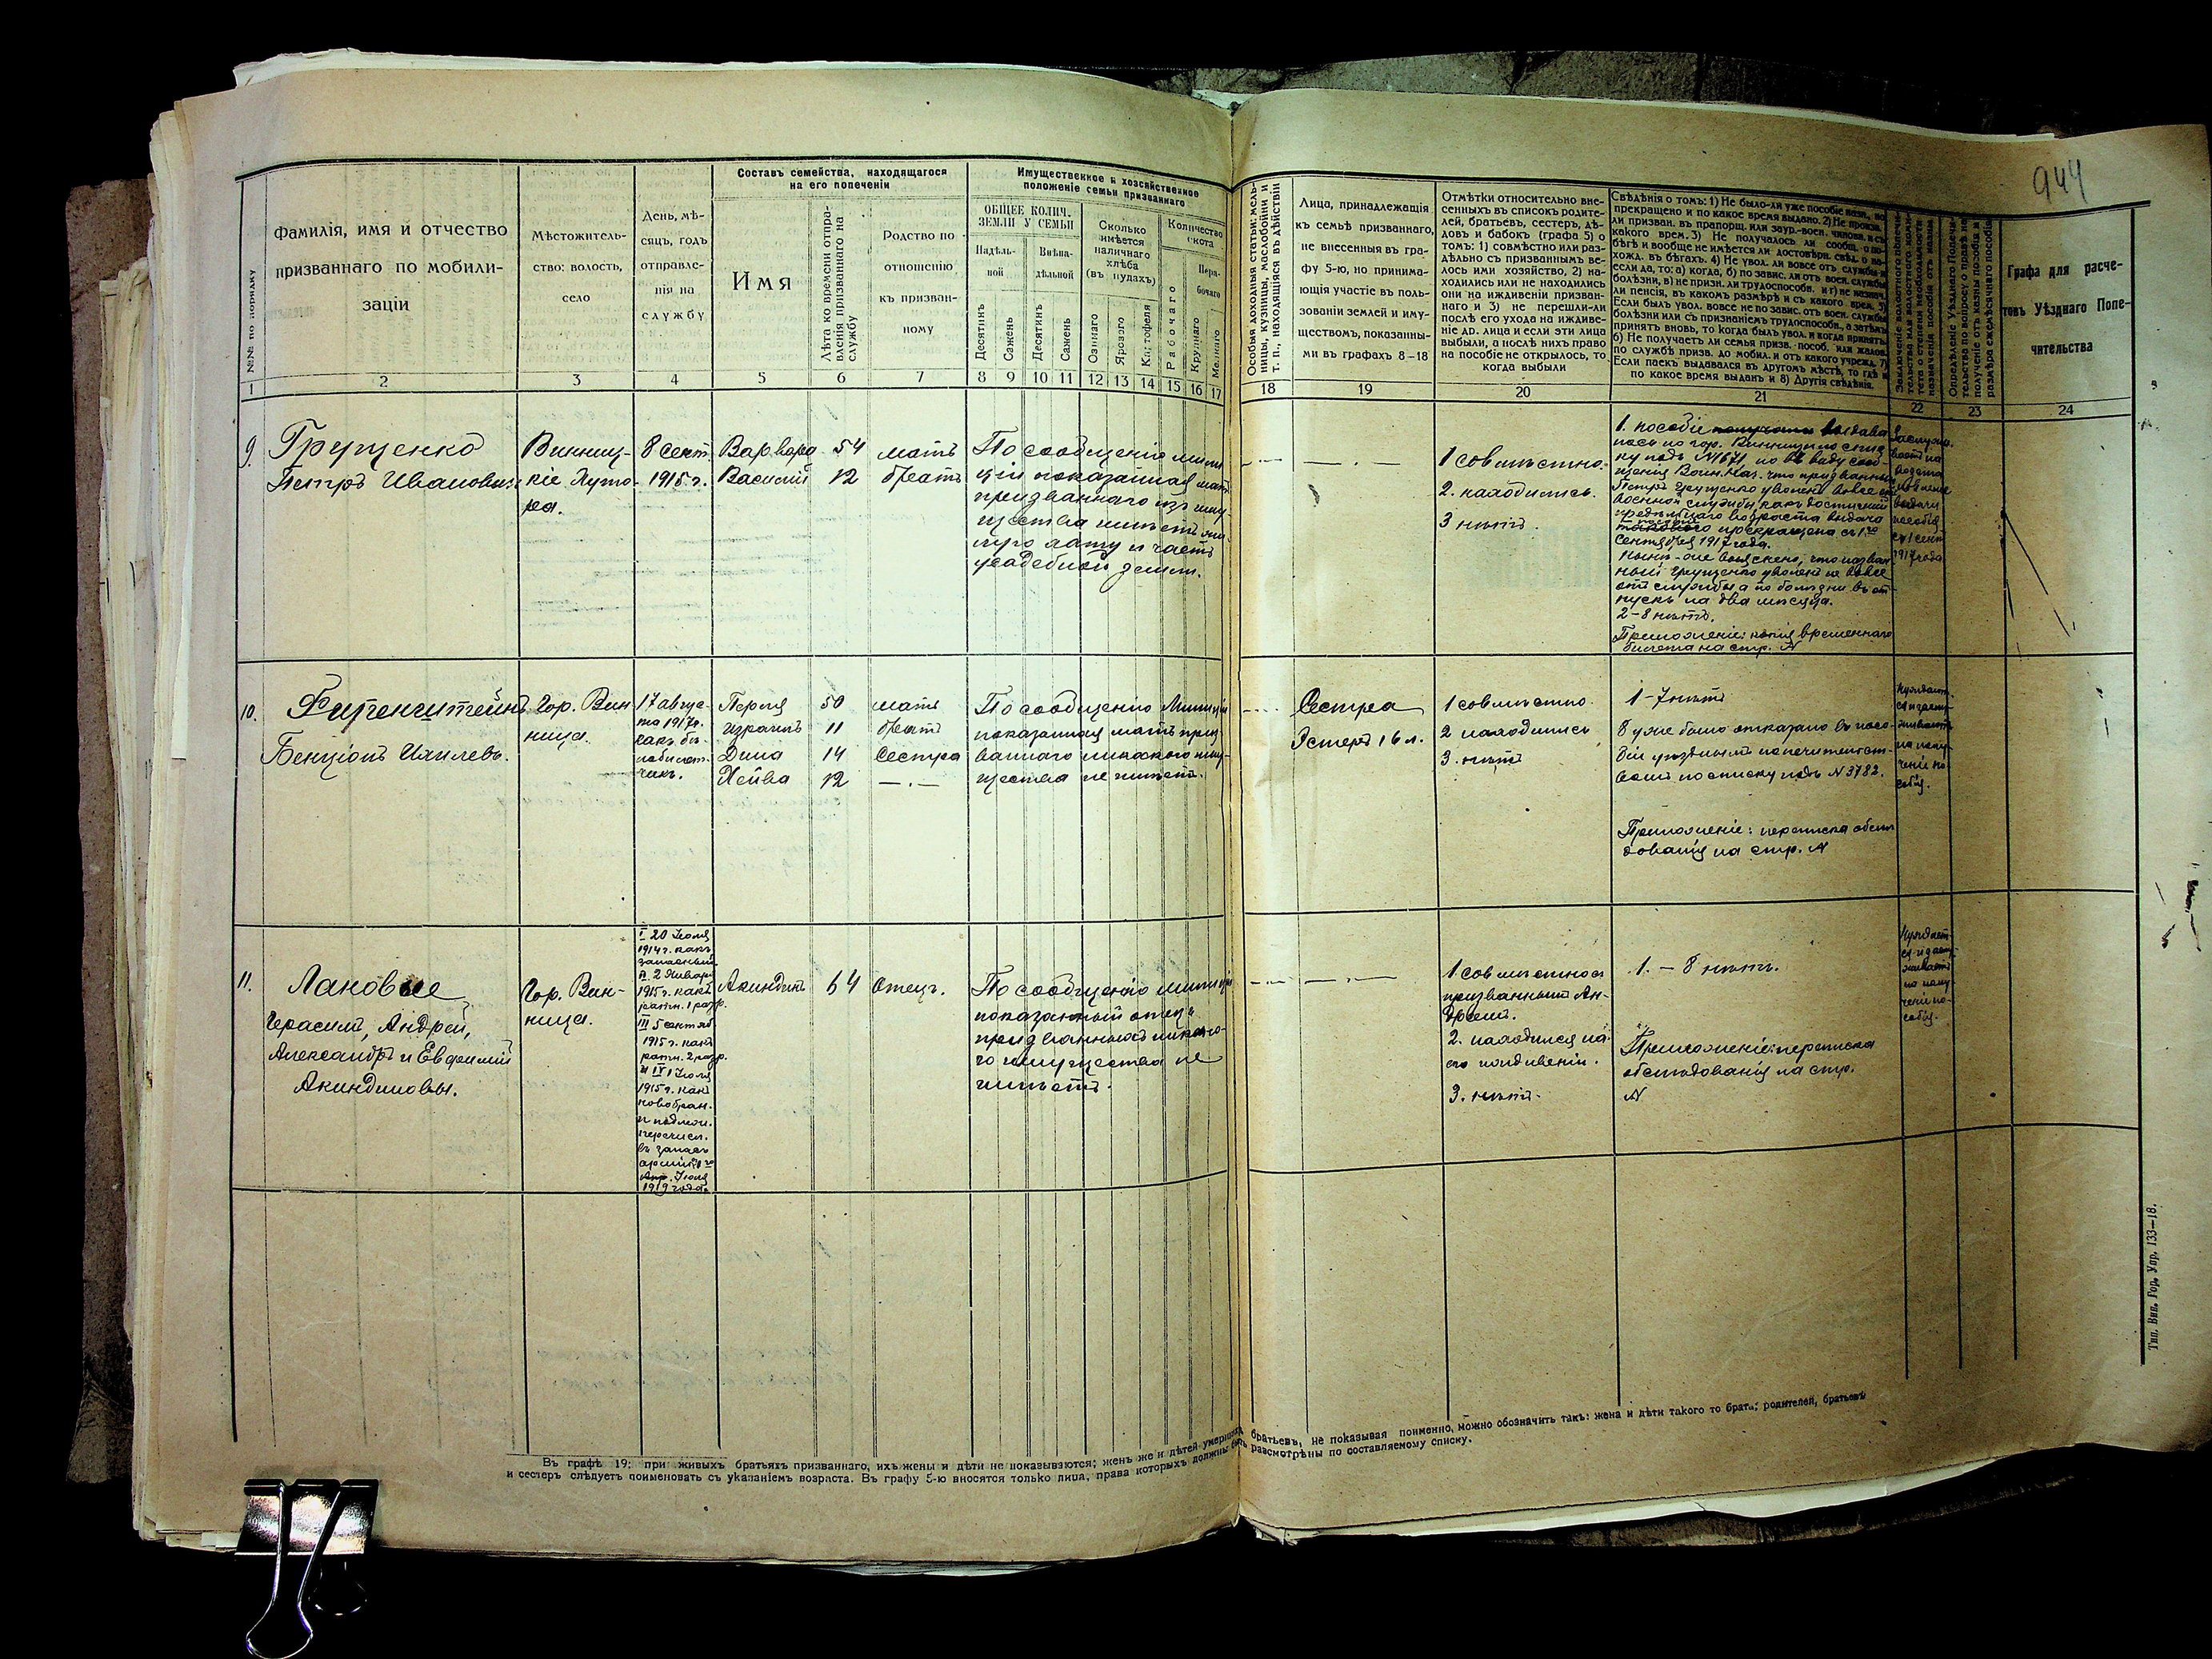 944
№№ по порядку
Фамилія, имя и отчество
призваннаго по мобили-
заціи
Мѣстожитель-
ство: волость,
село
День, мѣ-
сяцъ, годъ
отправле-
нія на
службу
Составъ семейства, находящагося
на его попеченіи
Имя
Лѣта ко времени отпра-
вленія призваннаго на
службу
Родство по
отношенію
къ призван-
ному
Имущественное и хозяйственное
положеніе семьи призваннаго
ОБЩЕЕ КОЛИЧ.
ЗЕМЛИ У СЕМЬИ
Надѣль-
ной
Внѣна-
дѣльной
Десятинъ
Сажень
Десятинъ
Сажень
Сколько
имѣется
наличнаго
хлѣба
(въ пудахъ)
Озимаго
Ярового
Картофеля
Количество
скота
Рабочаго
Нера-
бочаго
Крупнаго
Мелкаго
Особыя доходныя статьи: мель-
ницы, кузницы, маслобойни и
т. п., находящіяся въ дѣйствіи
Лица, принадлежащія
къ семьѣ призваннаго,
не внесенныя въ гра-
фу 5-ю, но принима-
ющія участіе въ поль-
зованіи землей и иму-
ществомъ, показанны-
ми въ графахъ 8-18
Отмѣтки относительно вне-
сенныхъ въ списокъ родите-
лей, братьевъ, сестеръ, дѣ-
довъ и бабокъ (графа 5) о
томъ: 1) совмѣстно или раз-
дѣльно съ призваннымъ ве-
лось ими хозяйство, 2) на-
ходились или не находились
они на иждивеніи призван-
наго и 3) не перешли-ли
послѣ его ухода на иждиве-
ніе др. лица и если эти лица
выбыли, а послѣ нихъ право
на пособіе не открылось, то
когда выбыли
Свѣдѣнія о томъ: 1) Не было-ли уже пособіе назн., но
прекращено и по какое время выдано. 2) Не произв.
ли призван. въ прапорщ. или заур.-воен. чиновн. и съ
какого врем. 3) Не получалось ли сообщ. о по-
бѣгѣ и вообще не имѣется ли достовѣрн. свѣд. о на-
хожд. въ бѣгахъ. 4) Не увол. ли вовсе отъ службы и
если да, то: а) когда, б) по завис. ли отъ воен. службы
болѣзни, в) не призн. ли трудоспособн. и г) не назнач.
ли пенсія, въ какомъ размѣрѣ и съ какого врем. 5)
Если былъ увол. вовсе не по завис. отъ воен. службы
болѣзни или съ признаніемъ трудоспособн., а затѣмъ
принятъ вновь, то когда былъ увол. и когда принятъ
6) Не получаетъ ли семья призв. пособ. или жалов.
по службѣ призв. до мобил. и отъ какого учрежд. 7)
Если паекъ выдавался въ другомъ мѣстѣ, то гдѣ и
по какое время выданъ и 8) Другія свѣдѣнія.
Заключеніе волостного попечи-
тельства или волостного коми-
тета о степени необходимости
назначенія пособія отъ казны
Опредѣленіе Уѣзднаго Попечи-
тельства по вопросу о правѣ на
полученіе отъ казны пособія и
размѣра ежемѣсячнаго пособія
Графа для расче-
товъ Уѣзднаго Попе-
чительства
1 2 3 4 5 6 7 8 9 10 11 12 13 14 15 16 17 18 19 20 21 22 23 24
9.
Грущенко
Петръ Ивановъ.
Винниц-
кіе Хуто-
ра.
8 сент.
1915 г.
Варвара 54 мать
Василій 12 братъ
По сообщенію мили
ціи показанная мать
призваннаго изъ иму-
щества имѣетъ
хату и часть
усадебной земли.
1 совмѣстно.
2. находились.
3 нѣтъ.
1. пособіе выдава
лось по гор. Винницѣ по спис
ку подъ №1671 но въ виду сооб-
щенія Воин. Нач. что призванный
Петръ Грущенко уволенъ вовсе отъ
военной службы, какъ достигшій
предѣльнаго возраста выдача
прекращена съ 1го
Сентября 1917 года.
Нынѣ-же выяснено, что назван
ный Грущенко уволенъ не вовсе
отъ службы а по болѣзни въ от-
пускъ на два мѣсяца.
2-8 нѣтъ.
Приложеніе: копія временнаго
билета на стр. №
съ 1 сент.
1917 года
10.
Фитенштейнъ
Бенціонъ Ихилевъ.
Гор. Вин
ница.
17 авгус-
та 1917г.
какъ бѣ-
лобилет-
чикъ.
Перля 50 мать
Израиль 11 братъ
Дина 14 Сестра
Хейва 12 —.—
По сообщенію Милиціи
показанная мать приз
ваннаго никакого иму-
щества не имѣетъ.
Сестра
Эстеръ 16 л.
1 совмѣстно.
2 находились
3. нѣтъ
1-7 нѣтъ
8 уже было отказано въ посо-
біи уѣзднымъ попечительст-
вомъ по списку подъ №3782.
Приложеніе: переписка обслѣ
дованія на стр. №
Нуждает-
ся и заслу-
живаетъ
на полу-
ченіе по-
собія.
11.
Лановые
Герасимъ, Андрей,
Александръ и Евфимій
Акиндиновы.
Гор. Вин-
ница.
I 20 Іюля
1914 г. какъ
запасный
II 2 Января
1915 г. какъ
ратн. 1 разр.
III 5 сентяб
1915 г. какъ
ратн. 2 разр.
и IV 1 Іюля
1915 г. какъ
новобран.
и подлеж.
перечисл.
въ запасъ
арміи 1го
Іюля
1919 года
Акиндинъ 64 Отецъ.
По сообщенію милиціи
показанный отецъ
призванныхъ никако-
го имущества не
имѣетъ.
1 совмѣстно съ
призваннымъ Ан-
дреемъ.
2. находился на
его иждивеніи.
3. нѣтъ.
1. – 8 нѣтъ.
Приложеніе: переписка
обслѣдованія на стр.
№
Нуждает-
ся и заслу-
живаетъ
на полу-
ченіе по-
собія.
Въ графѣ 19: при живыхъ братьяхъ призваннаго, ихъ жены и дѣти не показываются; женъ же и дѣтей умершихъ братьевъ, не показывая поименно, можно обозначить такъ: жена и дѣти такого то брата; родителей, братьевъ
и сестеръ слѣдуетъ поименовать съ указаніемъ возраста. Въ графу 5-ю вносятся только лица, права которыхъ должны быть разсмотрѣны по составляемому списку.
Тип. Вин. Гор. Упр. 133—18.